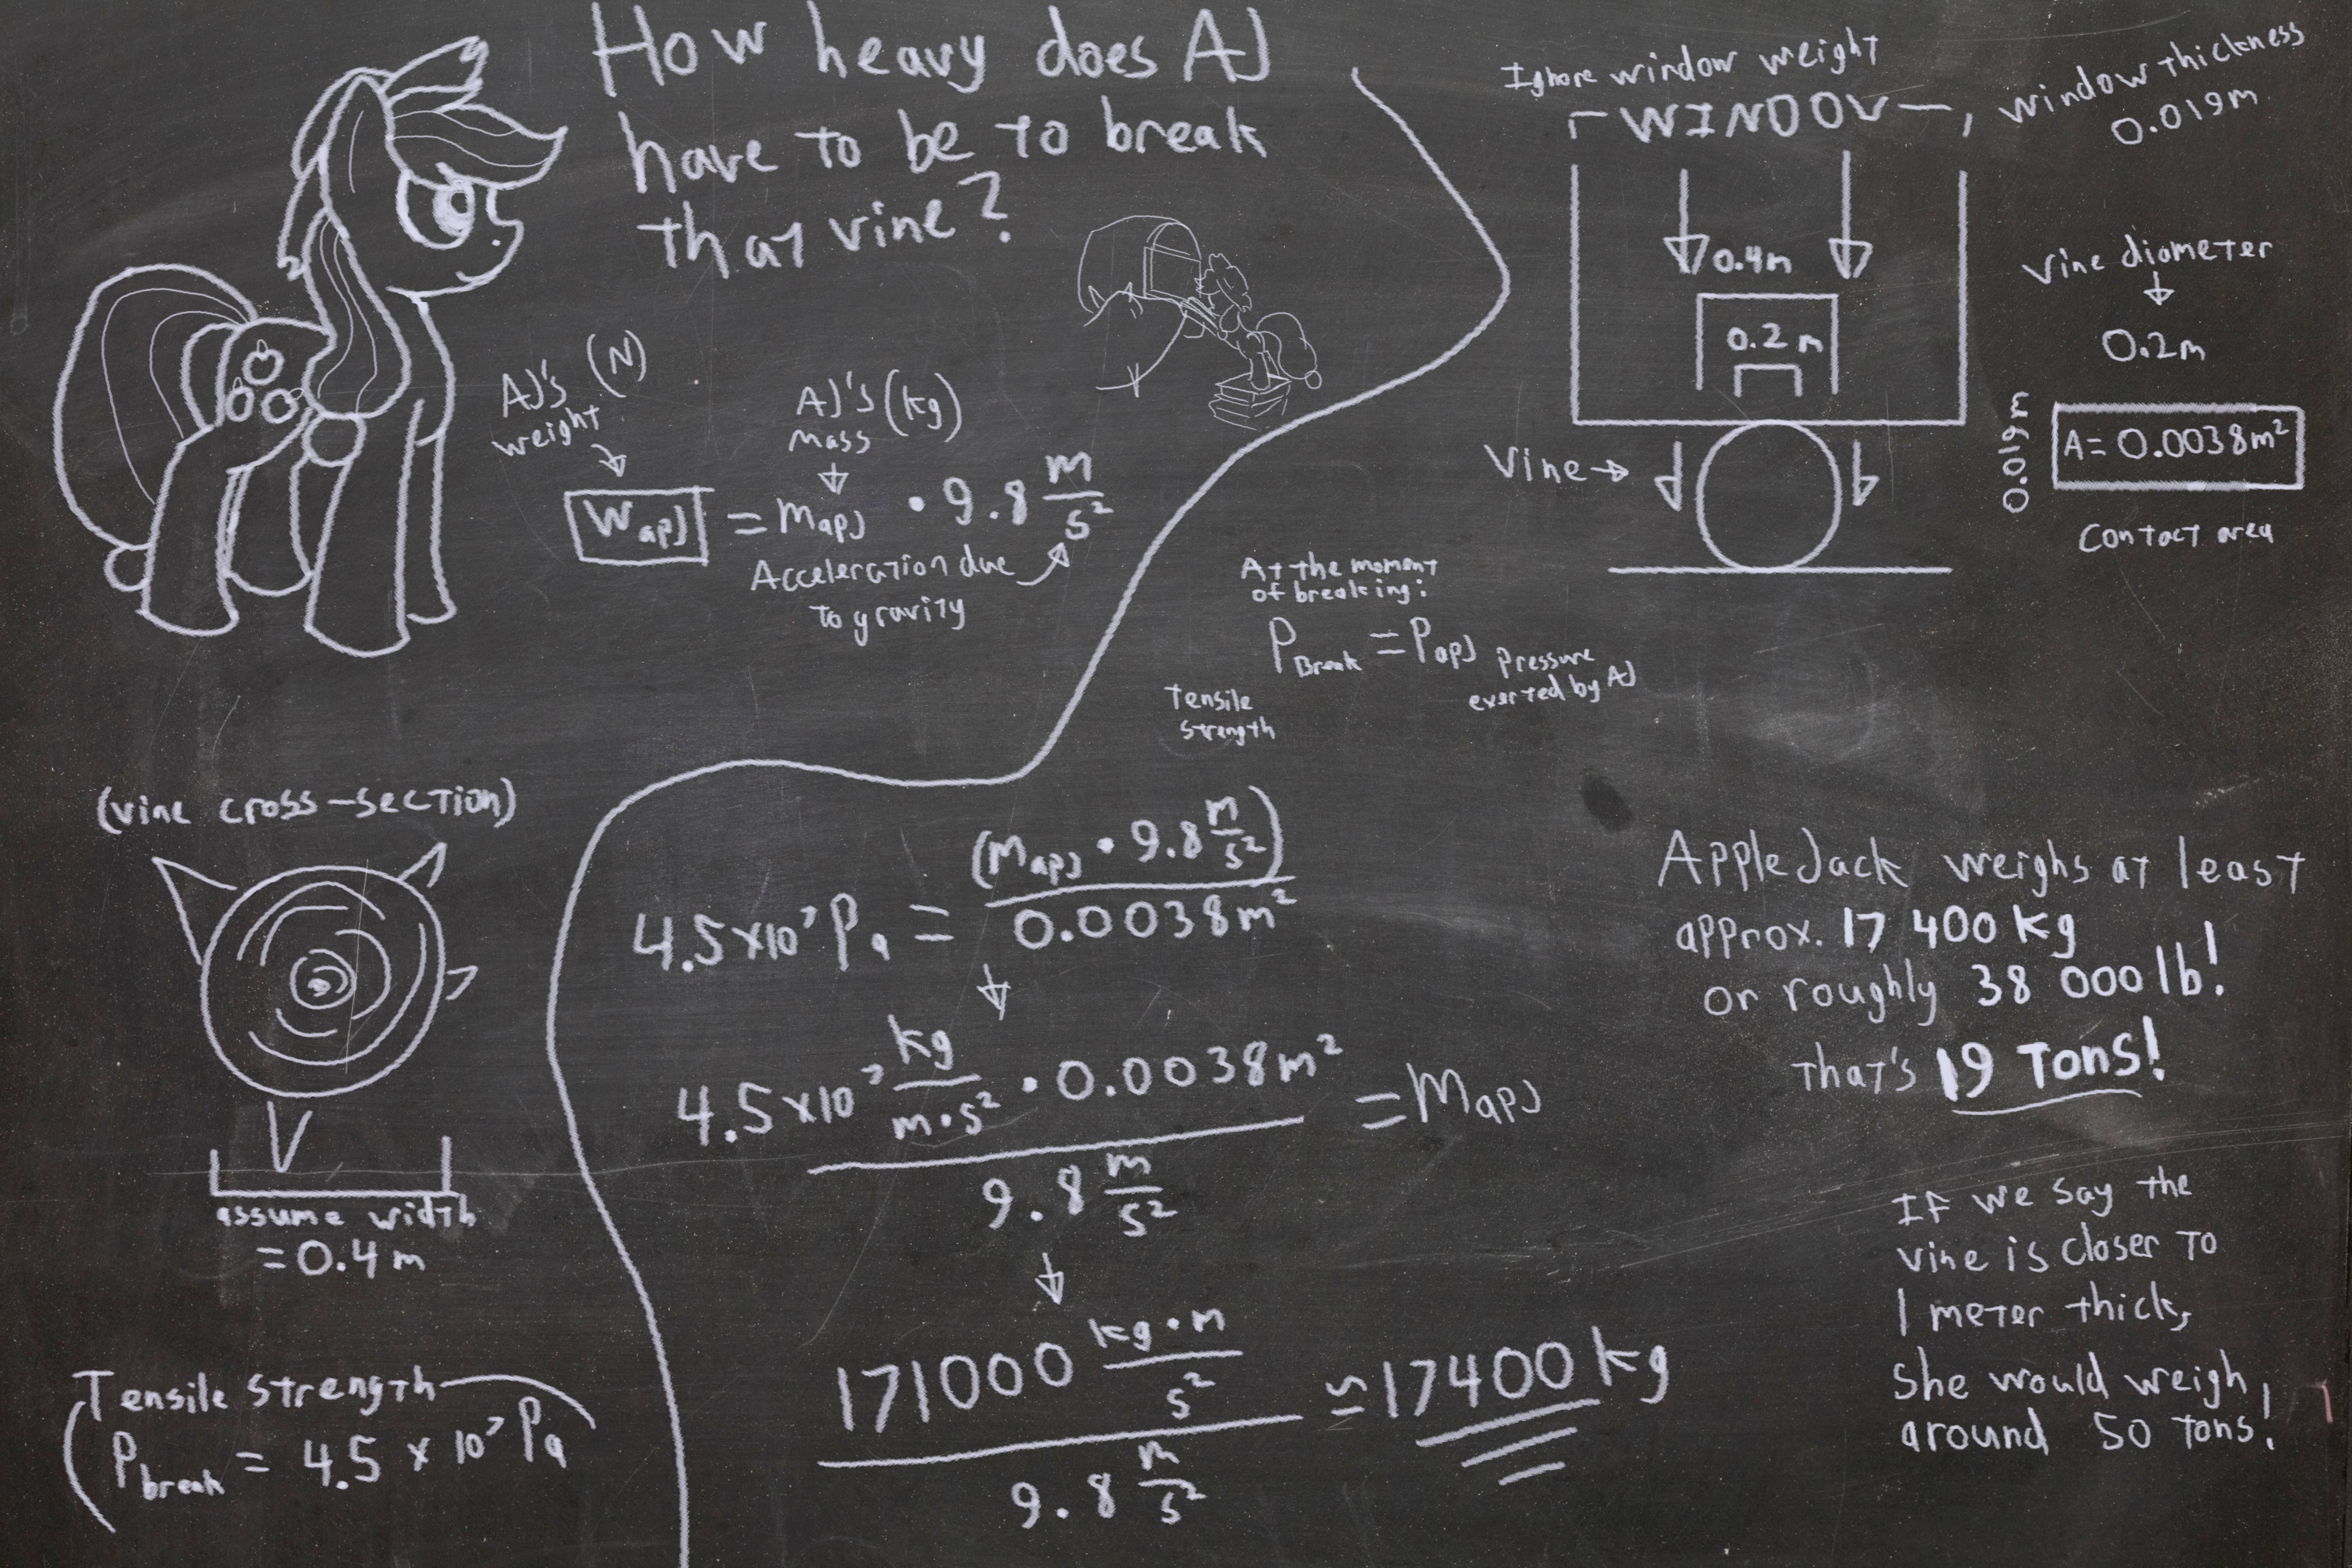 How heavy does AJ
have to be to break
that vine?
AJ's (N)
weight
AJ's (kg)
mass
WapJ = MapJ • 9.8 m/s²
Acceleration due
to gravity
Ignore window weight
WINDOW
window thickness
0.019m
0.4m
0.2m
Vine diameter
0.2m
0.019m
A= 0.0038m²
Contact area
Vine
At the moment
of breaking:
PBreak = PapJ
Pressure
exerted by AJ
Tensile
strength
(vine cross-section)
assume width
=0.4m
Tensile strength
Pbreak = 4.5 x 10⁷ Pa
4.5x10⁷ Pa = (MapJ • 9.8 m/s²)/0.0038m²
4.5x10⁷ kg/m•s² • 0.0038m² / 9.8 m/s² = MapJ
171000 kg•m/s² / 9.8 m/s² ≃ 17400 kg
AppleJack weighs at least
approx. 17 400 kg
or roughly 38 000 lb!
That's 19 Tons!
If we say the
vine is closer to
1 meter thick,
She would weigh
around 50 tons!